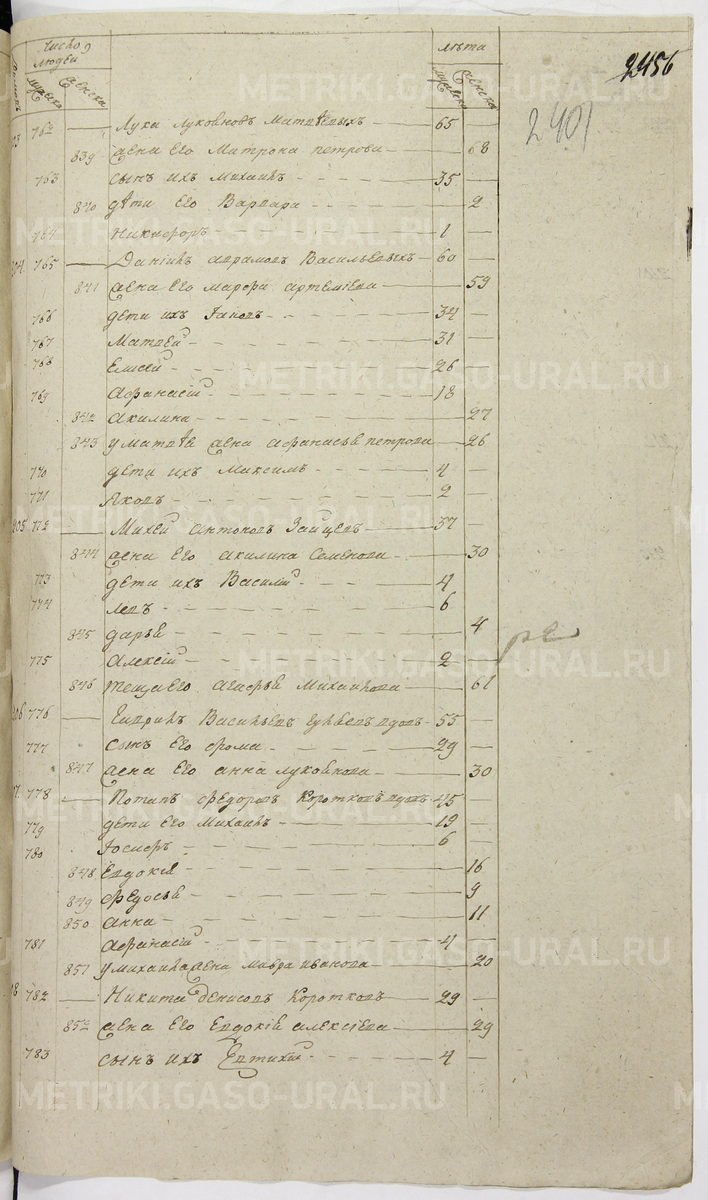 Число
людей
лѣта
мужеска
женска
мужеска
женска
2456
2401
762 Лука Луковновъ Матвѣевыхъ 65
839 жена Его Матрона петрова 68
763 сынъ ихъ Михаилъ 35
840 дѣти Его Варвара 2
764 Никифоръ 1
765 Данiилъ аврамовъ Васильевыхъ 60
841 жена Его марфа артемiева 59
766 дети ихъ Iаковъ 34
767 Матвей 31
768 Елисей 26
769 афанасiй 18
842 акилина 27
843 у матвѣя жена афанасья петрова 26
770 дети ихъ Максимъ 4
771 Яковъ 2
205 772 Михей антоновъ Зайцевъ 37
844 жена Его акилина Семенова 30
773 дети ихъ Василий 4
774 левъ 6
845 дарья 4
775 Алексiй 2
846 теща Его агафья Михаилова 61
206 776 Василь вдовъ 55
777 сынъ Его фома 29
847 жена Его анна луковнова 30
778 Потапъ федоровъ Коротковъ вдовъ 45
779 дети Его Михаилъ 19
780 Iосифъ 6
848 Евдокiя 16
849 федосья 9
850 анна 11
781 афанасiй 4
851 у михаила жена мавра иванова 20
782 Никита денисовъ Коротковъ 29
852 жена Его Евдокiя алексiева 29
783 сынъ ихъ Евтихий 4
METRIKI.GASO-URAL.RU